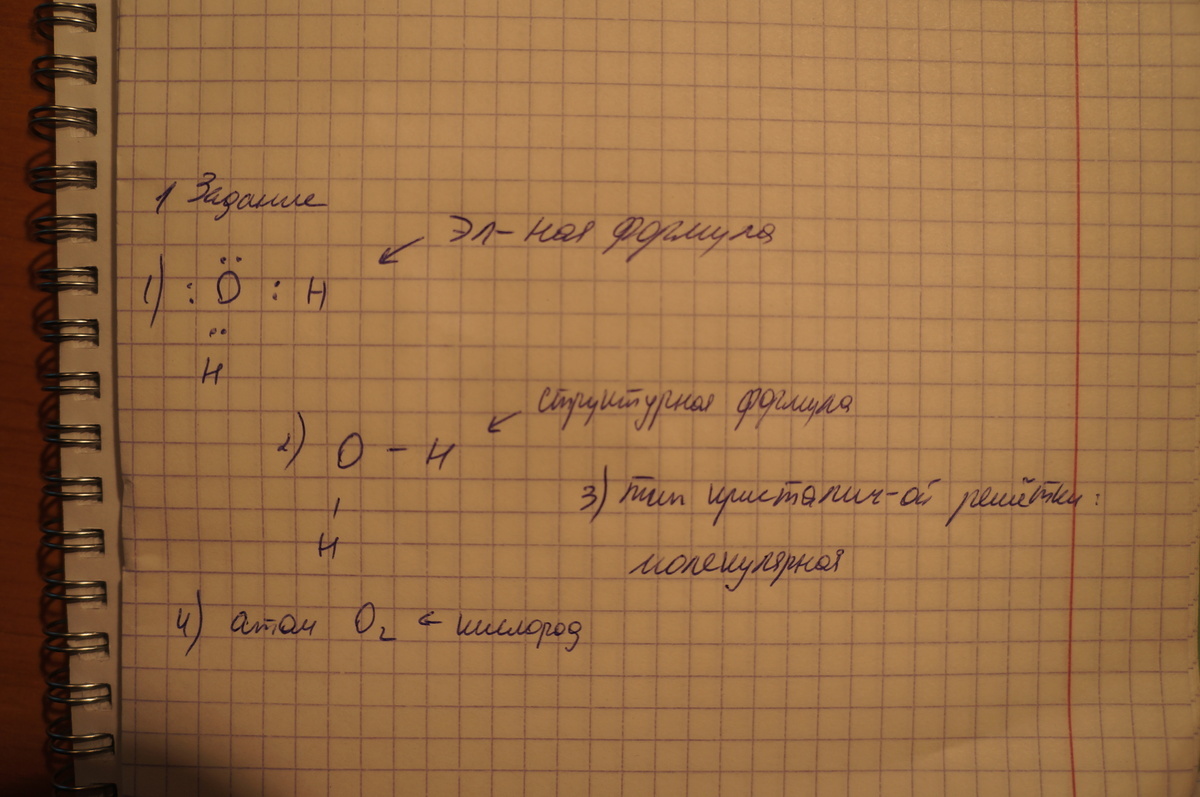 1 Задание
Эл-ная формула
1) :Ö : H
..
H
структурная формула
2) O - H
|
H
3) тип кристалич-ой решётки:
молекулярная
4) атом O₂ ← кислород